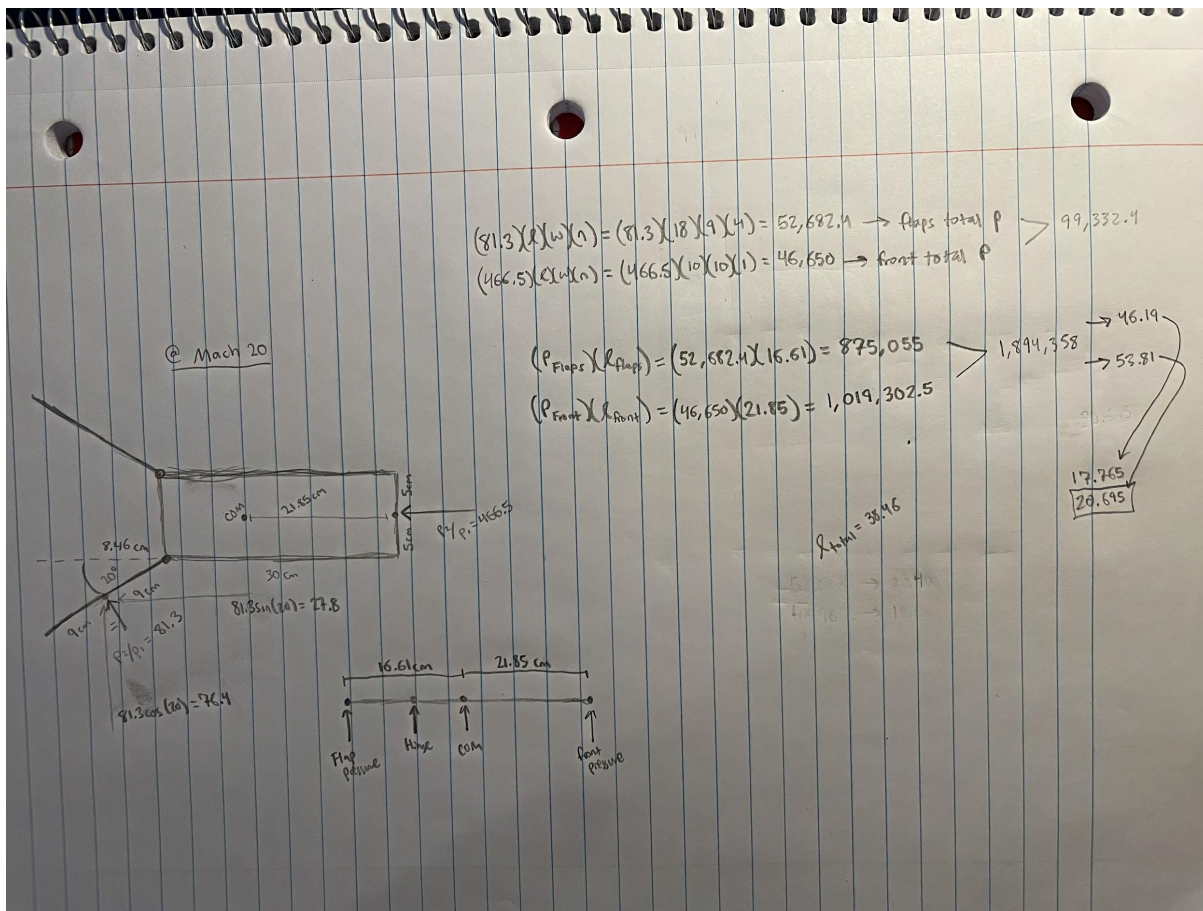 (81.3)(ℓ)(w)(n) = (81.3)(18)(9)(4) = 52,682.4 → flaps total P > 99,332.4
(466.5)(ℓ)(w)(n) = (466.5)(10)(10)(1) = 46,650 → front total P
(P Flaps)(ℓ flaps) = (52,682.4)(16.61) = 875,055 > 1,894,358 → 46.19
(P Front)(ℓ front) = (46,650)(21.85) = 1,019,302.5 → 53.81
17.765
20.695
ℓ total = 38.46
@ Mach 20
COM
21.85 cm
5cm
5cm
P2/P1 = 466.5
30 cm
8.46 cm
20°
9cm
9cm
P2/P1 = 81.3
81.3sin(20) = 27.8
81.3cos(20) = 76.4
16.61cm
21.85 cm
Flap pressure
Hinge
COM
front pressure